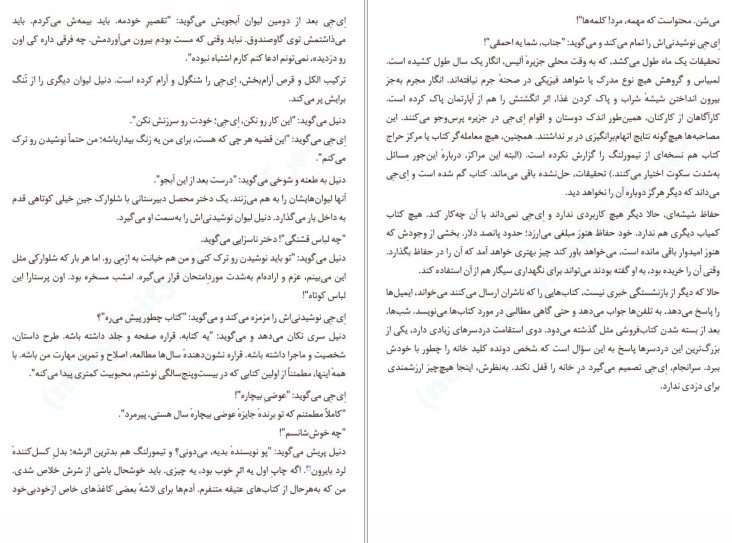 ای‌جی بعد از دومین لیوان آبجویش می‌گوید: "تقصیرِ خودمه. باید بیمه‌ش می‌کردم. باید
می‌ذاشتمش توی گاوصندوق. نباید وقتی که مست بودم بیرون می‌آوردمش. چه فرقی داره کی اون
رو دزدیده، نمی‌تونم ادعا کنم کارم اشتباه نبوده".
ترکیب الکل و قرص آرام‌بخش، ای‌جی را شنگول و آرام کرده است. دنیل لیوان دیگری را از تُنگ
برایش پر می‌کند.
دنیل می‌گوید: "این کار رو نکن، ای‌جی؛ خودت رو سرزنش نکن".
ای‌جی می‌گوید: "این قضیه هر چی که هست، برای من یه زنگ بیدارباشه؛ حتماً نوشیدن رو ترک
می‌کنم".
دنیل به طعنه و شوخی می‌گوید: "درست بعد از این آبجو".
آنها لیوان‌هایشان را به هم می‌زنند. یک دختر محصل دبیرستانی با شلوارک جینِ خیلی کوتاهی قدم
به داخل بار می‌گذارد. دنیل لیوان نوشیدنی‌اش را به‌سمت او می‌گیرد.
"چه لباس قشنگی"! دختر ناسزایی می‌گوید.
دنیل می‌گوید: "تو باید نوشیدن رو ترک کنی و من هم خیانت به اِزمی رو. اما هر بار که شلوارکی مثل
این می‌بینم، عزم و اراده‌ام به‌شدت موردِامتحان قرار می‌گیره. امشب مسخره بود. اون پرستار! این
لباس کوتاه"!
ای‌جی نوشیدنی‌اش را مزمزه می‌کند و می‌گوید: "کتاب چطور پیش می‌ره"؟
دنیل سری تکان می‌دهد و می‌گوید: "یه کتابه. قراره صفحه و جلد داشته باشه. طرح داستان،
شخصیت و ماجرا داشته باشه. قراره نشون‌دهندهٔ سال‌ها مطالعه، اصلاح و تمرین مهارت من باشه. با
همهٔ اینها، مطمئناً از اولین کتابی که در بیست‌وپنج‌سالگی نوشتم، محبوبیت کمتری پیدا می‌کنه".
ای‌جی می‌گوید: "عوضیِ بیچاره"!
"کاملاً مطمئنم که تو برندهٔ جایزهٔ عوضیِ بیچارهٔ سال هستی، پیرمرد".
"چه خوش‌شانسم"!
دنیل پریش می‌گوید: "پو نویسندهٔ بدیه، می‌دونی؟ و تیمورلنگ هم بدترین اثرشه؛ بدلِ کسل‌کنندهٔ
لرد بایرون. اگه چاپ اول یه اثرِ خوب بود، یه چیزی. باید خوشحال باشی از شرش خلاص شدی.
من که به‌هرحال از کتاب‌های عتیقه متنفرم. آدم‌ها برای لاشهٔ بعضی کاغذهای خاص ازخودبی‌خود
می‌شن. محتواست که مهمه، مرد! کلمه‌ها"!
ای‌جی نوشیدنی‌اش را تمام می‌کند و می‌گوید: "جناب، شما یه احمقی"!
تحقیقات یک ماه طول می‌کشد، که به وقت محلی جزیرهٔ آلیس، انگار یک سال طول کشیده است.
لمبیاس و گروهش هیچ نوع مدرک یا شواهد فیزیکی در صحنهٔ جرم نیافته‌اند. انگار مجرم به‌جز
بیرون انداختن شیشهٔ شراب و پاک کردن غذا، اثر انگشتش را هم از آپارتمان پاک کرده است.
کارآگاهان از کارکنان، همین‌طور اندک دوستان و اقوام ای‌جی در جزیره پرس‌وجو می‌کنند. این
مصاحبه‌ها هیچ‌گونه نتایج اتهام‌برانگیزی در بر نداشتند. همچنین، هیچ معامله‌گر کتاب یا مرکز حراج
کتاب هم نسخه‌ای از تیمورلنگ را گزارش نکرده است. (البته این مراکز، دربارهٔ این‌جور مسائل
به‌شدت سکوت اختیار می‌کنند.) تحقیقات، حل‌نشده باقی می‌ماند. کتاب گم شده است و ای‌جی
می‌داند که دیگر هرگز دوباره آن را نخواهد دید.
حفاظ شیشه‌ای، حالا دیگر هیچ کاربردی ندارد و ای‌جی نمی‌داند با آن چه‌کار کند. هیچ کتاب
کمیاب دیگری هم ندارد. خود حفاظ هنوز مبلغی می‌ارزد؛ حدود پانصد دلار. بخشی از وجودش که
هنوز امیدوار باقی مانده است، می‌خواهد باور کند چیز بهتری خواهد آمد که آن را در حفاظ بگذارد.
وقتی آن را خریده بود، به او گفته بودند می‌تواند برای نگهداری سیگار هم از آن استفاده کند.
حالا که دیگر از بازنشستگی خبری نیست، کتاب‌هایی را که ناشران ارسال می‌کنند می‌خواند، ایمیل‌ها
را پاسخ می‌دهد، به تلفن‌ها جواب می‌دهد و حتی گاهی مطالبی در مورد کتاب‌ها می‌نویسد. شب‌ها،
بعد از بسته شدن کتاب‌فروشی مثل گذشته می‌دود. دوی استقامت دردسرهای زیادی دارد، یکی از
بزرگ‌ترین این دردسرها پاسخ به این سؤال است که شخص دونده کلید خانه را چطور با خودش
ببرد. سرانجام، ای‌جی تصمیم می‌گیرد درِ خانه را قفل نکند. به‌نظرش، اینجا هیچ‌چیز ارزشمندی
برای دزدی ندارد.